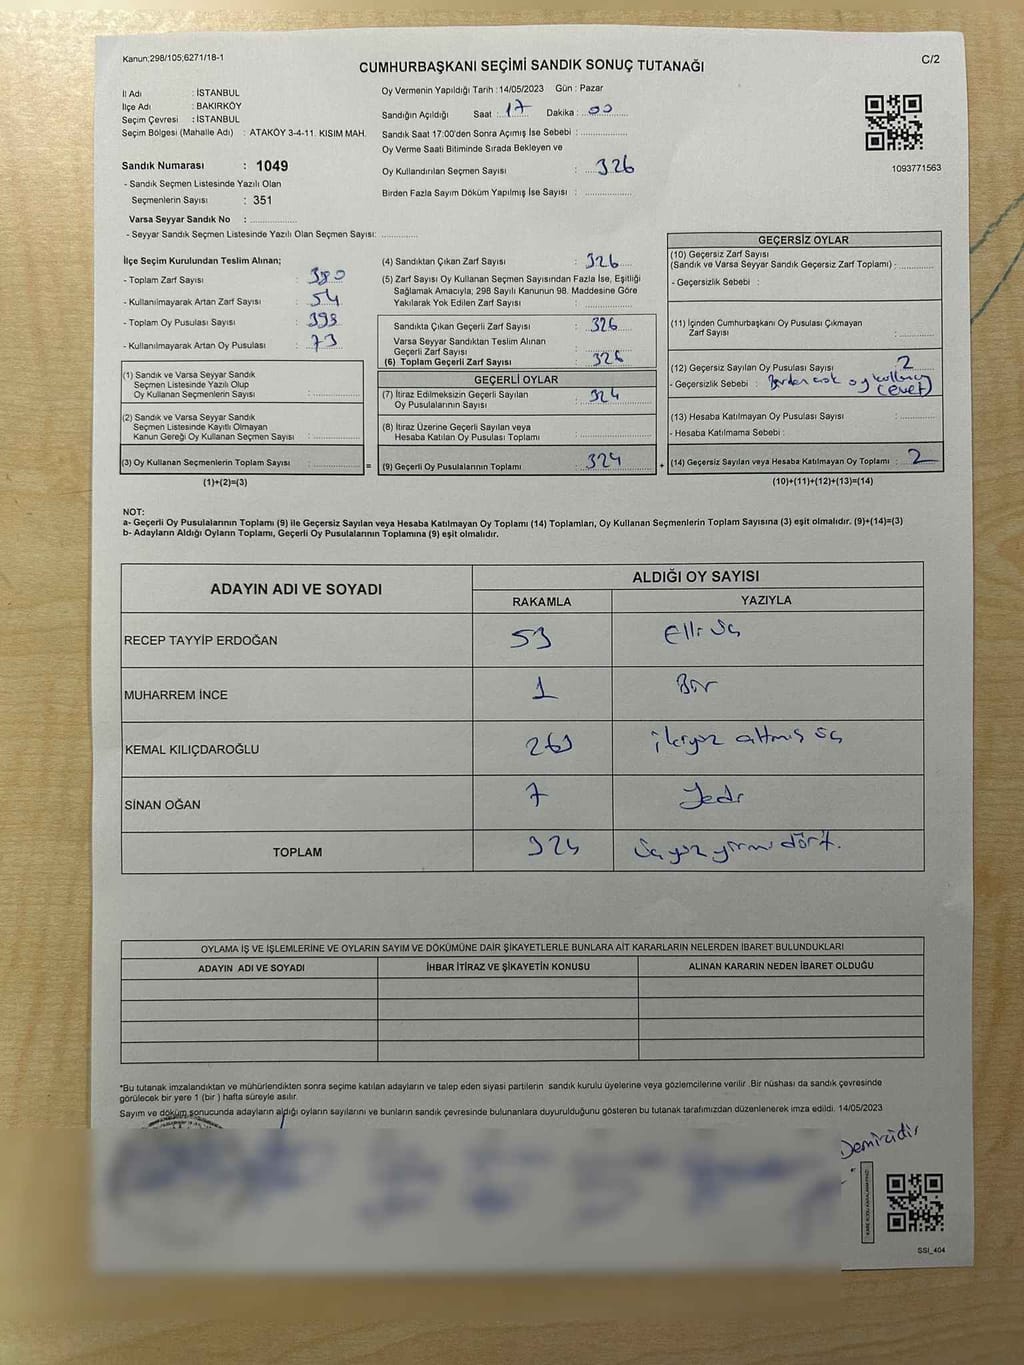 Kanun;298/105;6271/18-1
CUMHURBAŞKANI SEÇİMİ SANDIK SONUÇ TUTANAĞI
C/2
İl Adı : İSTANBUL
İlçe Adı : BAKIRKÖY
Seçim Çevresi : İSTANBUL
Seçim Bölgesi (Mahalle Adı) : ATAKÖY 3-4-11. KISIM MAH.
Sandık Numarası : 1049
- Sandık Seçmen Listesinde Yazılı Olan
Seçmenlerin Sayısı : 351
Varsa Seyyar Sandık No : ................
- Seyyar Sandık Seçmen Listesinde Yazılı Olan Seçmen Sayısı: ............
Oy Vermenin Yapıldığı Tarih : 14/05/2023 Gün : Pazar
Sandığın Açıldığı Saat : 17 Dakika : 00
Sandık Saat 17:00'den Sonra Açımış İse Sebebi : ................
Oy Verme Saati Bitiminde Sırada Bekleyen ve
Oy Kullandırılan Seçmen Sayısı : 326
Birden Fazla Sayım Döküm Yapılmış İse Sayısı : ................
1093771563
İlçe Seçim Kurulundan Teslim Alınan;
- Toplam Zarf Sayısı : 380
- Kullanılmayarak Artan Zarf Sayısı : 54
- Toplam Oy Pusulası Sayısı : 399
- Kullanılmayarak Artan Oy Pusulası : 73
(1) Sandık ve Varsa Seyyar Sandık
Seçmen Listesinde Yazılı Olup
Oy Kullanan Seçmenlerin Sayısı : ................
(2) Sandık ve Varsa Seyyar Sandık
Seçmen Listesinde Kayıtlı Olmayan
Kanun Gereği Oy Kullanan Seçmen Sayısı : ................
(3) Oy Kullanan Seçmenlerin Toplam Sayısı : ................
(1)+(2)=(3)
(4) Sandıktan Çıkan Zarf Sayısı : 326
(5) Zarf Sayısı Oy Kullanan Seçmen Sayısından Fazla İse, Eşitliği
Sağlamak Amacıyla; 298 Sayılı Kanunun 98. Maddesine Göre
Yakılarak Yok Edilen Zarf Sayısı : ................
Sandıkta Çıkan Geçerli Zarf Sayısı : 326
Varsa Seyyar Sandıktan Teslim Alınan
Geçerli Zarf Sayısı : ................
(6) Toplam Geçerli Zarf Sayısı : 326
GEÇERLİ OYLAR
(7) İtiraz Edilmeksizin Geçerli Sayılan
Oy Pusulalarının Sayısı : 324
(8) İtiraz Üzerine Geçerli Sayılan veya
Hesaba Katılan Oy Pusulası Toplamı : ................
= (9) Geçerli Oy Pusulalarının Toplamı : 324 +
GEÇERSİZ OYLAR
(10) Geçersiz Zarf Sayısı
(Sandık ve Varsa Seyyar Sandık Geçersiz Zarf Toplamı) : ............
- Geçersizlik Sebebi :
(11) İçinden Cumhurbaşkanı Oy Pusulası Çıkmayan
Zarf Sayısı : ............
(12) Geçersiz Sayılan Oy Pusulası Sayısı : 2
- Geçersizlik Sebebi : Birden çok oy kullanma
(evet)
(13) Hesaba Katılmayan Oy Pusulası Sayısı : ............
- Hesaba Katılmama Sebebi :
(14) Geçersiz Sayılan veya Hesaba Katılmayan Oy Toplamı : 2
(10)+(11)+(12)+(13)=(14)
NOT:
a- Geçerli Oy Pusulalarının Toplamı (9) ile Geçersiz Sayılan veya Hesaba Katılmayan Oy Toplamı (14) Toplamları, Oy Kullanan Seçmenlerin Toplam Sayısına (3) eşit olmalıdır. (9)+(14)=(3)
b- Adayların Aldığı Oyların Toplamı, Geçerli Oy Pusulalarının Toplamına (9) eşit olmalıdır.
ADAYIN ADI VE SOYADI
ALDIĞI OY SAYISI
RAKAMLA YAZIYLA
RECEP TAYYİP ERDOĞAN 53 Elli üç
MUHARREM İNCE 1 Bir
KEMAL KILIÇDAROĞLU 263 ikiyüz altmış üç
SİNAN OĞAN 7 Yedi
TOPLAM 324 Üç yüz yirmi dört.
OYLAMA İŞ VE İŞLEMLERİNE VE OYLARIN SAYIM VE DÖKÜMÜNE DAİR ŞİKAYETLERLE BUNLARA AİT KARARLARIN NELERDEN İBARET BULUNDUKLARI
ADAYIN ADI VE SOYADI İHBAR İTİRAZ VE ŞİKAYETİN KONUSU ALINAN KARARIN NEDEN İBARET OLDUĞU
*Bu tutanak imzalandıktan ve mühürlendikten sonra seçime katılan adayların ve talep eden siyasi partilerin sandık kurulu üyelerine veya gözlemcilerine verilir .Bir nüshası da sandık çevresinde
görülecek bir yere 1 (bir ) hafta süreyle asılır.
Sayım ve döküm sonucunda adayların aldığı oyların sayılarını ve bunların sandık çevresinde bulunanlara duyurulduğunu gösteren bu tutanak tarafımızdan düzenlenerek imza edildi. 14/05/2023
Demirfidir
SSI_404